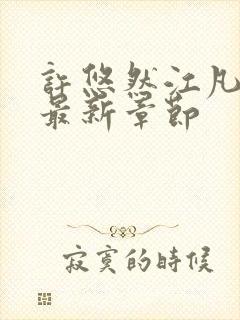 許悠然江凡
最新章節
寂寞的時候